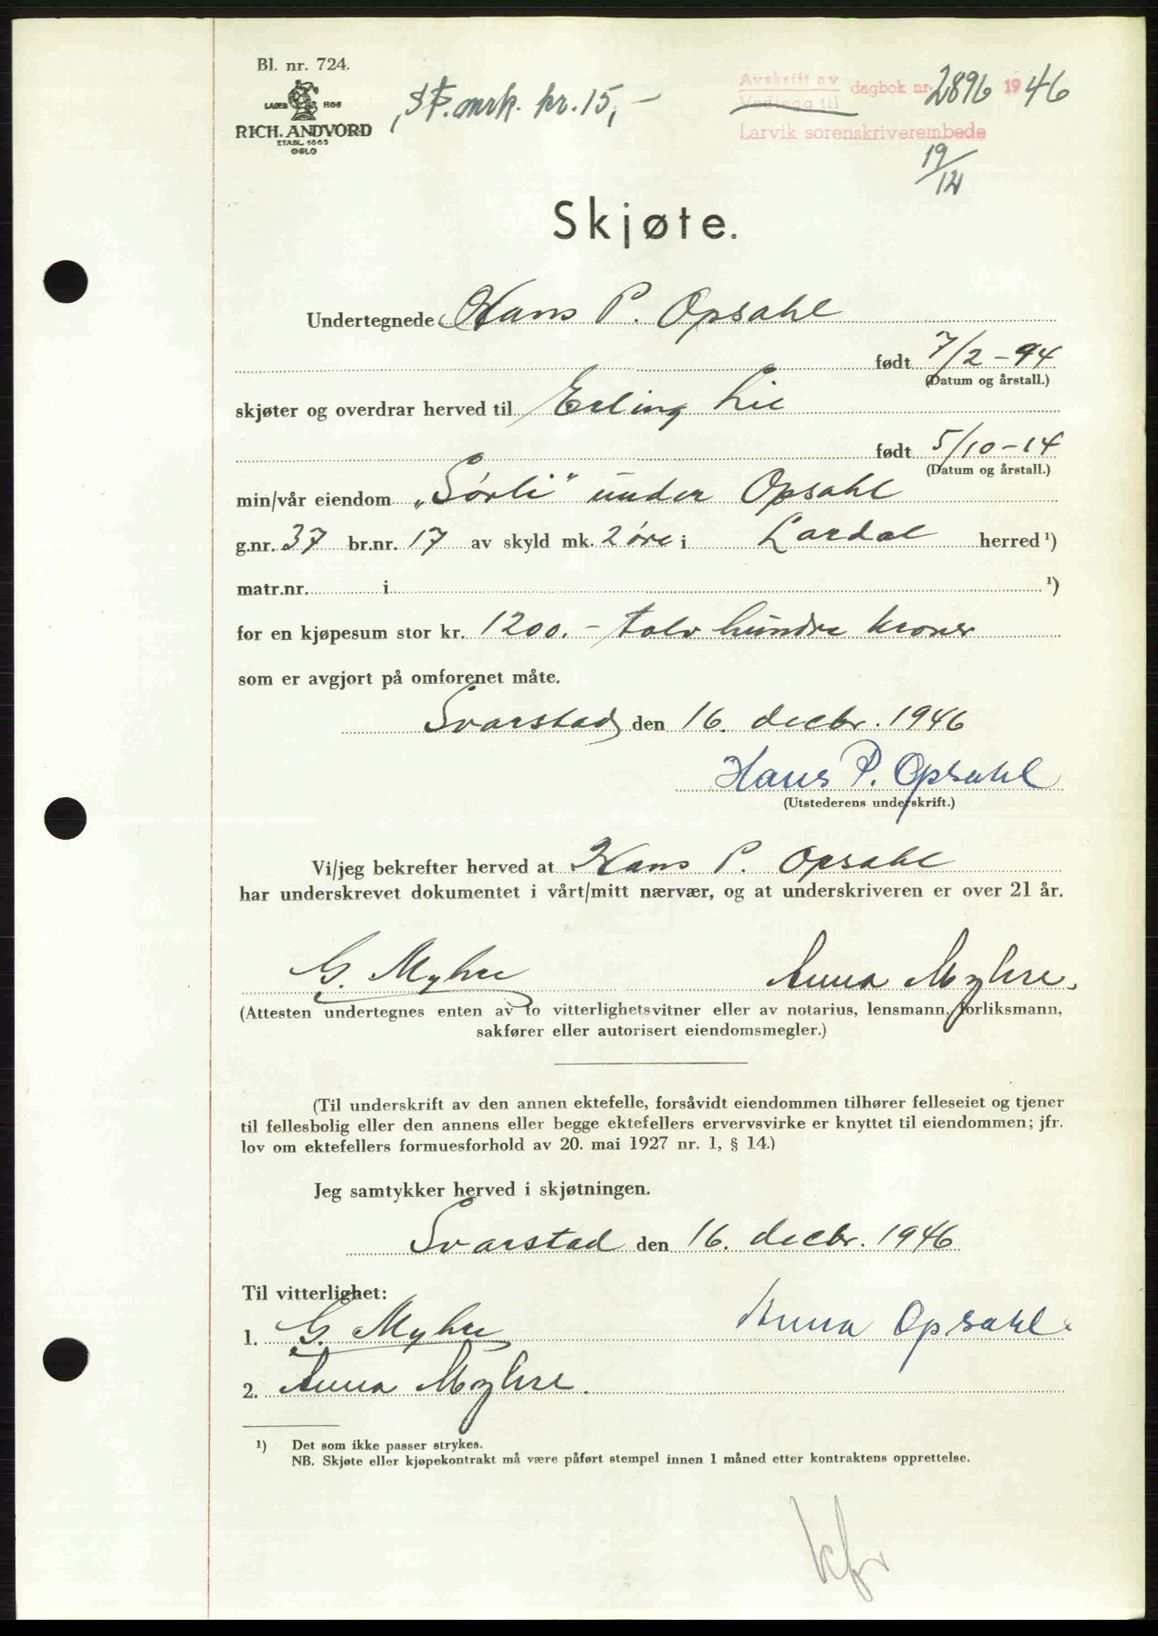 Bl. nr. 724.
LAGER HOS
RICH. ANDVORD
ETABL. 1865
OSLO
St. mrk. kr. 15,-
Avskrift av
Vedlegg til dagbok nr. 2896 1946
Larvik sorenskriverembede
19/12
Skjøte.
Undertegnede Hans P. Opsahl
født 7/2-94
(Datum og årstall.)
skjøter og overdrar herved til Erling Lie
født 5/10-14
(Datum og årstall.)
min/vår eiendom „Sørli" under Opsahl
g.nr. 37 br.nr. 17 av skyld mk. 2 øre i Lardal herred ¹)
matr.nr. i ¹)
for en kjøpesum stor kr. 1200.- tolv hundre kroner
som er avgjort på omforenet måte.
Svarstad den 16. decbr. 1946
Hans P. Opsahl
(Utstederens underskrift.)
Vi/jeg bekrefter herved at Hans P. Opsahl
har underskrevet dokumentet i vårt/mitt nærvær, og at underskriveren er over 21 år.
G. Myhre Anna Myhre.
(Attesten undertegnes enten av to vitterlighetsvitner eller av notarius, lensmann, forliksmann,
sakfører eller autorisert eiendomsmegler.)
(Til underskrift av den annen ektefelle, forsåvidt eiendommen tilhører felleseiet og tjener
til fellesbolig eller den annens eller begge ektefellers ervervsvirke er knyttet til eiendommen; jfr.
lov om ektefellers formuesforhold av 20. mai 1927 nr. 1, § 14.)
Jeg samtykker herved i skjøtningen.
Svarstad den 16. decbr. 1946
Til vitterlighet:
1. G. Myhre Anna Opsahl
2. Anna Myhre.
¹) Det som ikke passer strykes.
NB. Skjøte eller kjøpekontrakt må være påført stempel innen 1 måned etter kontraktens opprettelse.